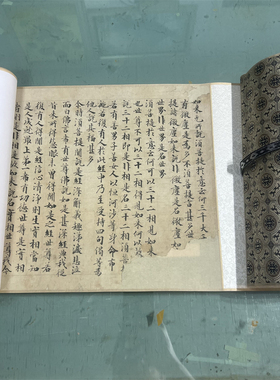 如来无所說須菩提於意云何三千大千
有微塵是為多不須菩提言甚多
提諸微塵如来說非微塵是名微塵
世界非世界是名世界
須菩提於意云何可以三十二相見如来
也世尊不可以三十二相得見如来何以故
說三十二相即是非相是名三十二相須菩提
若有善男子善女人以恒河沙等身命布
施若復有人於此經中乃至受持四句偈等為
他人說其福甚多
尒時須菩提聞說是經深解義趣涕淚悲泣
而白佛言希有世尊佛說如是甚深經典我從
昔来所得慧眼未曾得聞如是之經世尊若
復有人得聞是經信心清淨則生實相當知
是人成就第一希有功德世尊是實相
者則是非相是故如来說名實相世尊我今